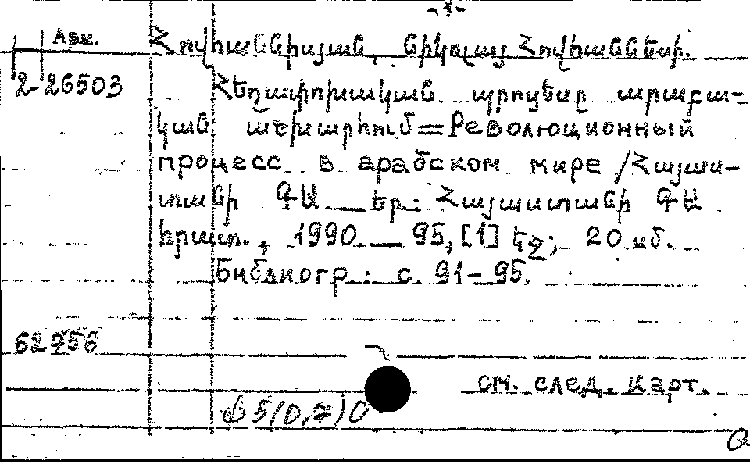 Арм.
Հովհաննիսյան, Նիկոլայ Հովհաննեսի.
2-26503
Հեղափոխական պրոցեսը արաբա-
կան աշխարհում = Революционный
процесс в арабском мире / Հայաս-
տանի ԳԱ. — Եր.: Հայաստանի ԳԱ
հրատ., 1990. — 95, [1] էջ; 20 սմ.
Библиогр.: с. 91-95.
62756
см. след. карт.